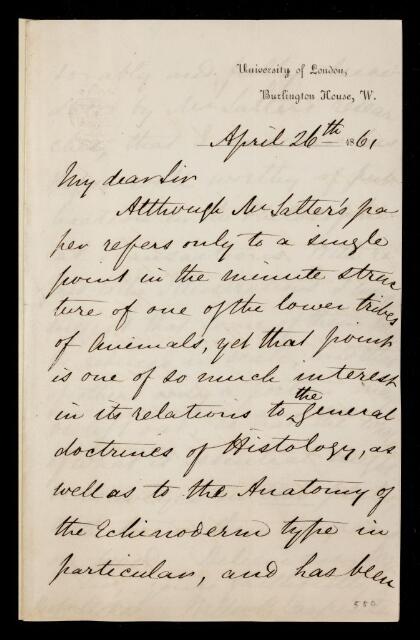 University of London,
Burlington House, W.
April 26th 1861
My dear Sir
Although Mr Salter's pa-
per refers only to a single
point in the minute struc
ture of one of the lower tribes
of Animals, yet that point
is one of so much interest
in its relations to the general
doctrines of Histology, as
well as to the Anatomy of
the Echinoderm type in
particular, and has been
550